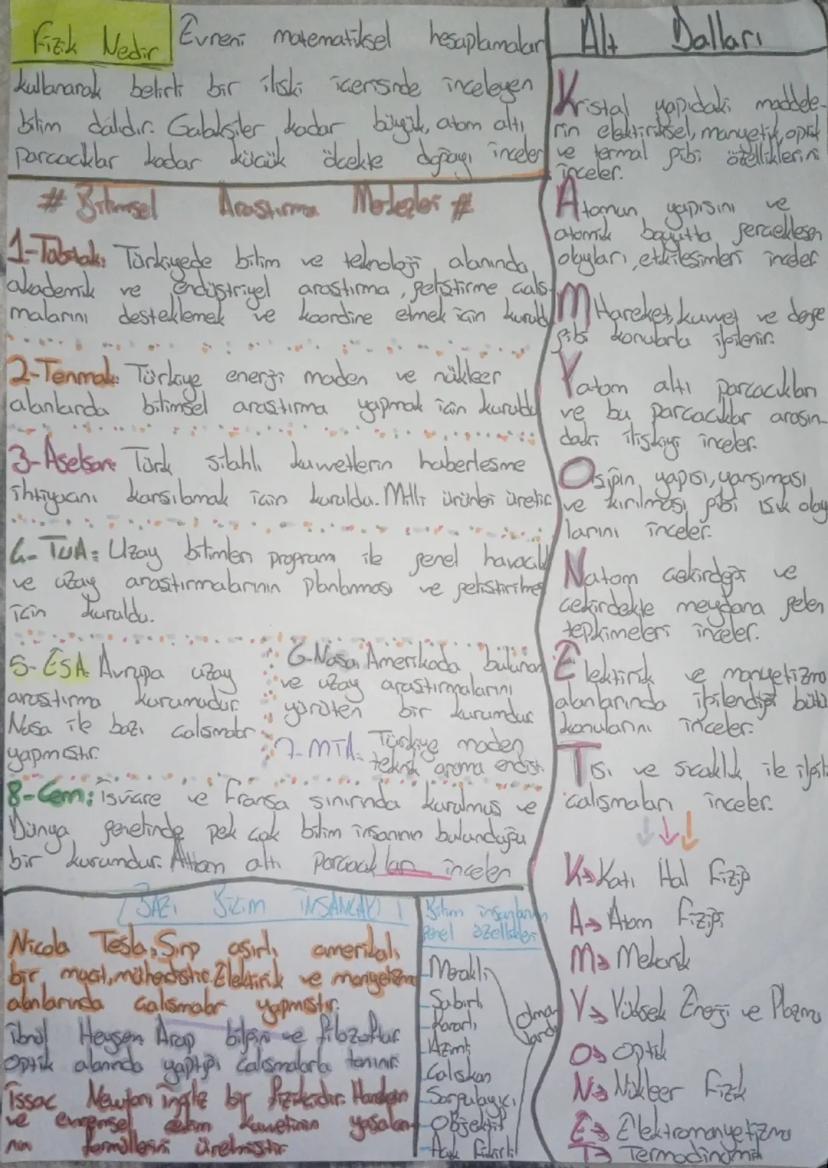 Fizik Nedir
Evreni matematiksel hesaplamalar
kullanarak belirli bir ilişki içerisinde inceleyen
bilim dalıdır. Galaksiler kadar büyük, atom altı
parçacıklar kadar küçük ölçekte doğayı inceler
# Bilimsel Araştırma Merkezleri #
1-Tübitak: Türkiyede bilim ve teknoloji alanında
akademik ve endüstriyel araştırma, geliştirme çalış-
malarını desteklemek ve koordine etmek için kuruldu
2-Tenmak: Türkiye enerji maden ve nükleer
alanlarda bilimsel araştırma yapmak için kuruldu
3-Aselsan: Türk silahlı kuvvetlerin haberleşme
ihtiyacını karşılamak için kuruldu. Milli ürünler üretir
4-TUA: Uzay bilimleri program ile genel havacılık
ve uzay araştırmalarının planlanması ve geliştirilmesi
için kuruldu.
5-ESA: Avrupa uzay
araştırma kurumudur
Nasa ile bazı çalışmalar
yapmıştır.
6-Nasa: Amerikada bulunan
ve uzay araştırmalarını
yürüten bir kurumdur
7-MTA: Türkiye maden
teknik arama enstit.
8-Cern: İsviçre ve Fransa sınırında kurulmuş ve
Dünya genelinde pek çok bilim insanın bulunduğu
bir kurumdur. Atom altı parçacıkları inceler
BAZI BİLİM İNSANLARI
Nicola Tesla, Sırp asıllı amerikalı
bir mucit, mühendistir. Elektirik ve manyetizma
alanlarında çalışmalar yapmıştır.
İbnül Heysem Arap bilgin ve filozoftur
Optik alanında yaptığı çalışmalarla tanınır.
İssac Newton: ingiliz bir fizikcidir. Hareket
ve evrensel çekim kuvvetinin yasaları
nın formüllerini üretmiştir
Bilim insanlarının
genel özellikleri
Meraklı
Sabırlı
Kararlı
Azimli
Çalışkan
Sorgulayıcı
Objektif
Açık Fikirli
Alt Dalları
Kristal yapıdaki maddele-
rin elektiriksel, manyetik, optik
ve termal gibi özelliklerini
inceler.
Atomun yapısını ve
atomik boyutta gerçekleşen
olayları, etkileşimleri inceler
M Hareket, kuvvet ve denge
gibi konularla ilgilenir.
Y atom altı parçacıkları
ve bu parçacıklar arasın-
daki ilişkiyi inceler.
O ışığın, yapısı, yansıması
ve kırılması gibi ışık olay
larını inceler.
N atom çekirdeği ve
çekirdekte meydana gelen
tepkimeleri inceler.
Elektirik ve manyetizma
alanlarında ilgilendiği bütün
konularını inceler.
T ısı ve sıcaklık ile ilgili
çalışmaları inceler.
K→Katı Hal Fiziği
A→Atom Fiziği
M→Mekanik
Y→Yüksek Enerji ve Plazma
O→Optik
N→Nükleer Fizik
E→Elektromanyetizma
T→Termodinamik